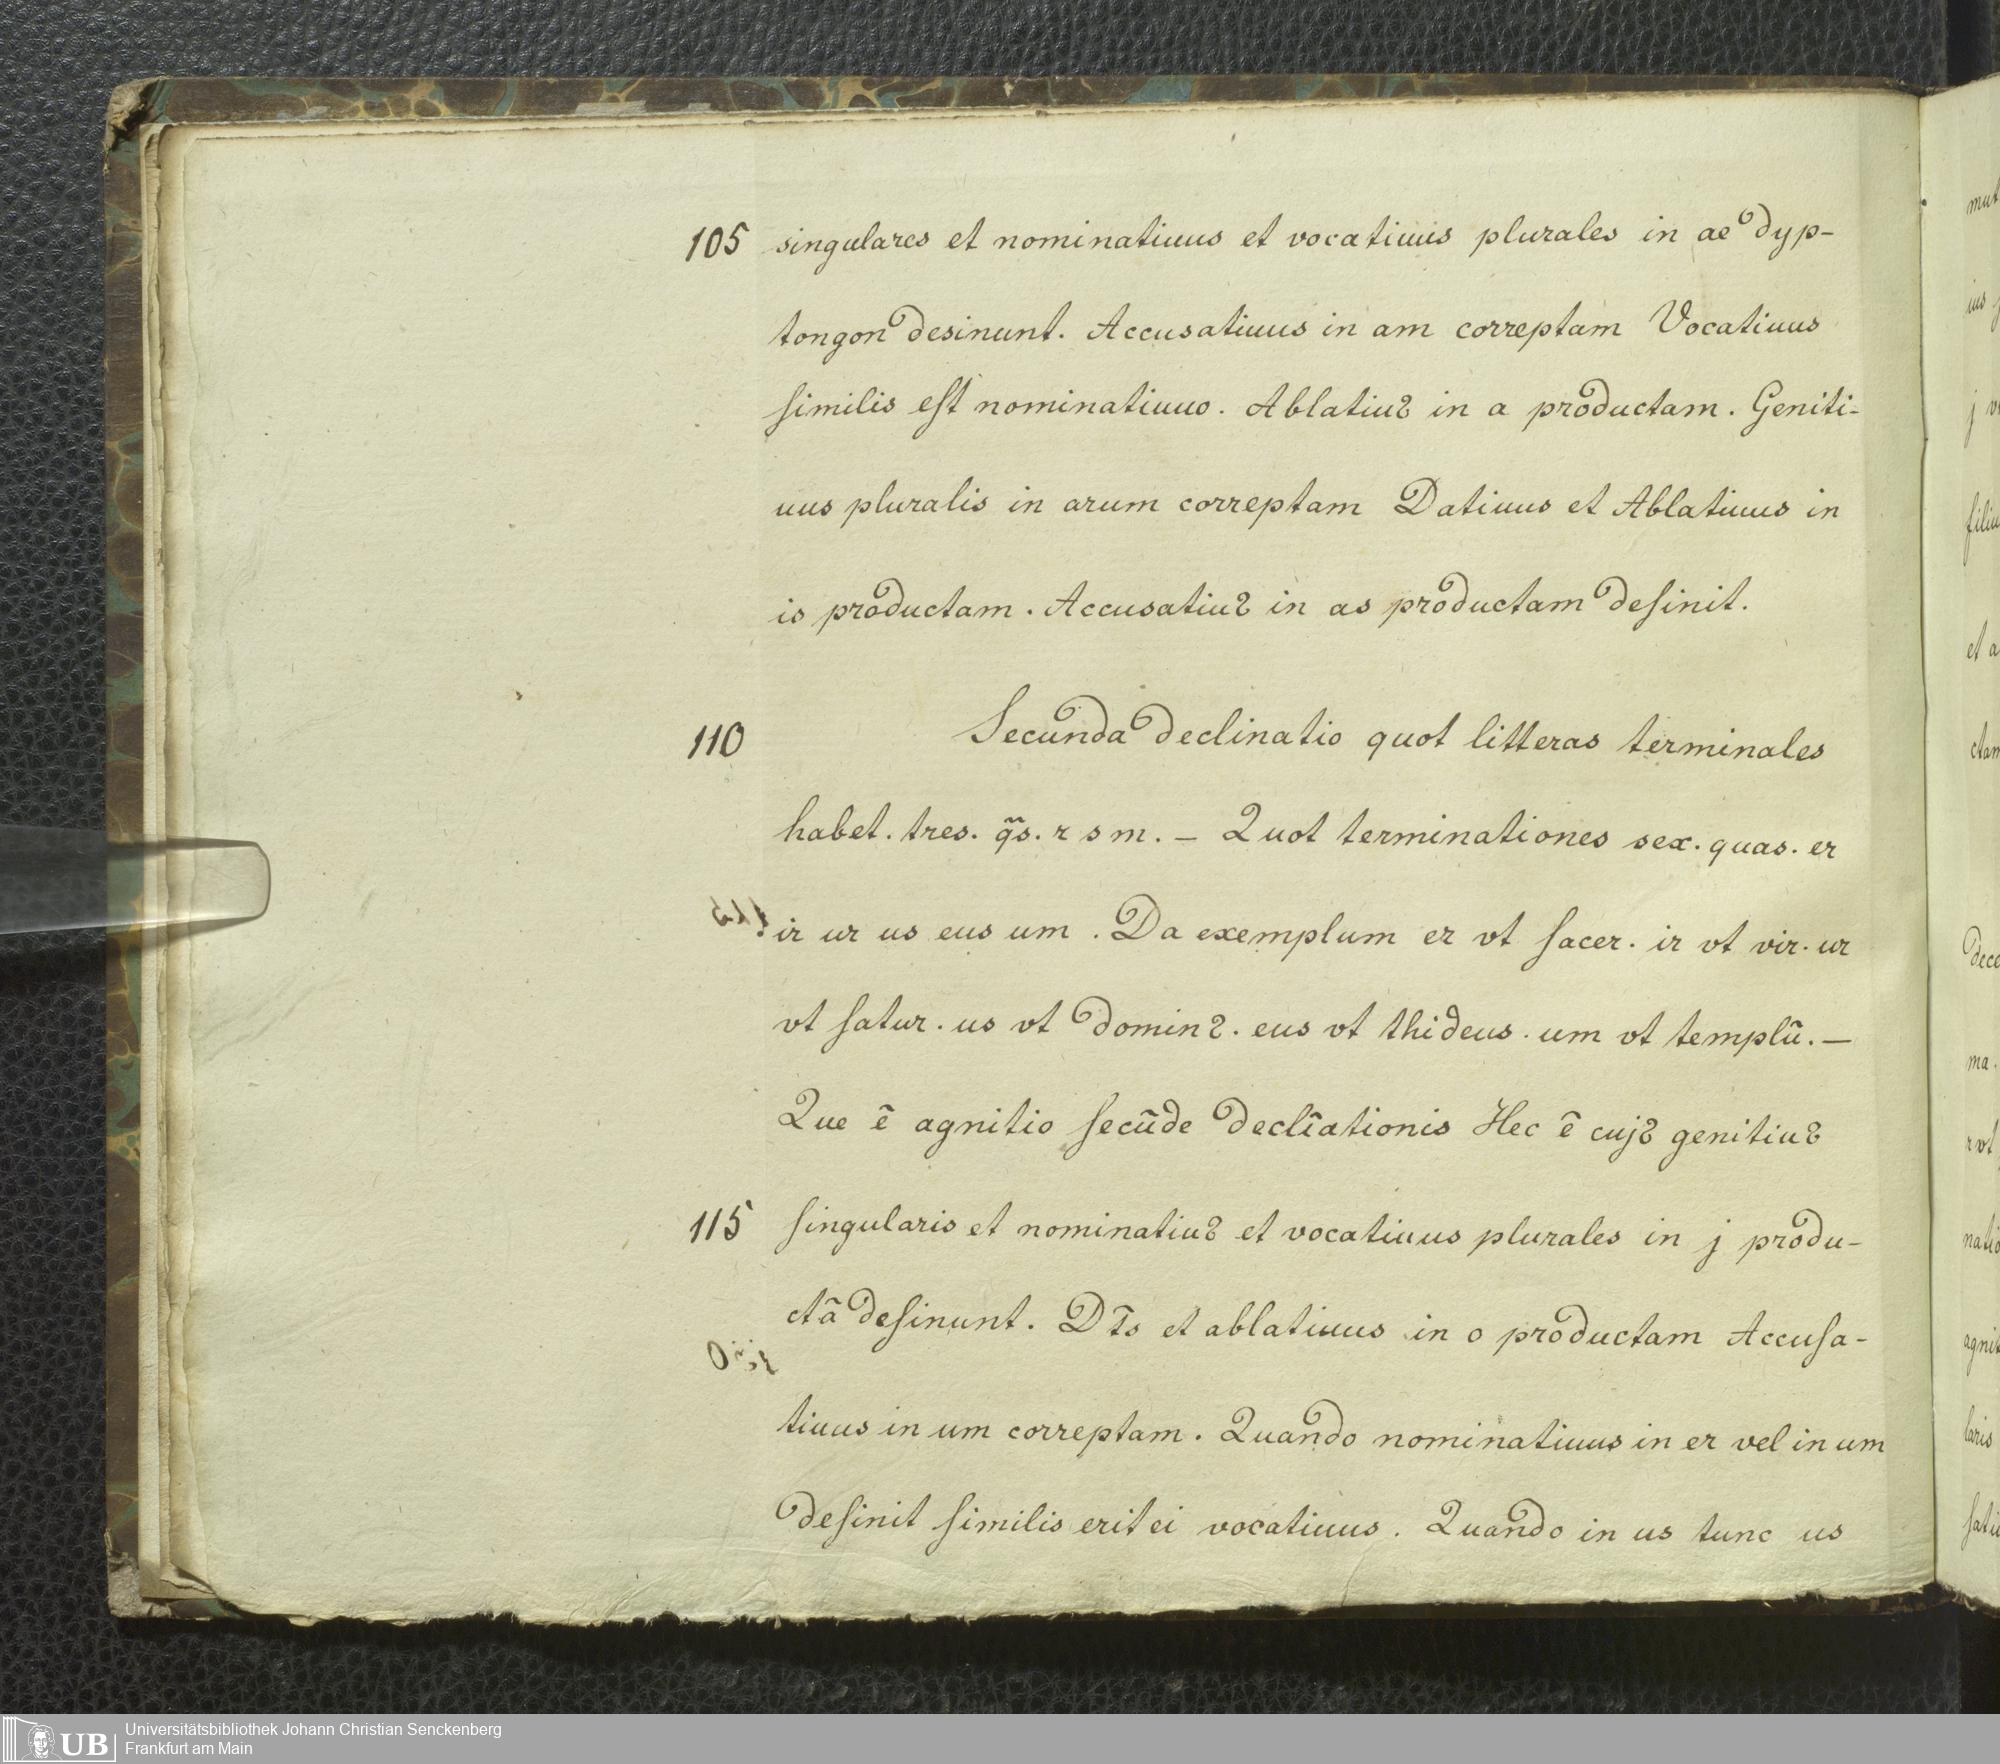 105 singulares et nominatiuus et vocatiuus plurales in ae dyp-
tongon desinunt. Accusatiuus in am correptam Vocatiuus
similis est nominatiuuo. Ablatiuꝰ in a productam. Geniti-
uus pluralis in arum correptam Datiuus et Ablatiuus in
is productam. Accusatiuꝰ in as productam desinit.
110 Secunda declinatio quot litteras terminales
habet. tres. q̃s. r s m. — Quot terminationes sex. quas. er
ir ur us eus um. Da exemplum er vt sacer. ir vt vir. ur
vt satur. us vt dominꝰ. eus vt thideus. um vt templũ. —
Que ẽ agnitio secũde declĩationis Hec ẽ cujꝰ genitiuꝰ
115 singularis et nominatiuꝰ et vocatiuus plurales in j produ-
ctã desinunt. Dt̃s et ablatiuus in o productam Accusa-
tiuus in um correptam. Quando nominatiuus in er vel in um
desinit similis erit ei vocatiuus. Quando in us tunc us
UB Universitätsbibliothek Johann Christian Senckenberg
Frankfurt am Main